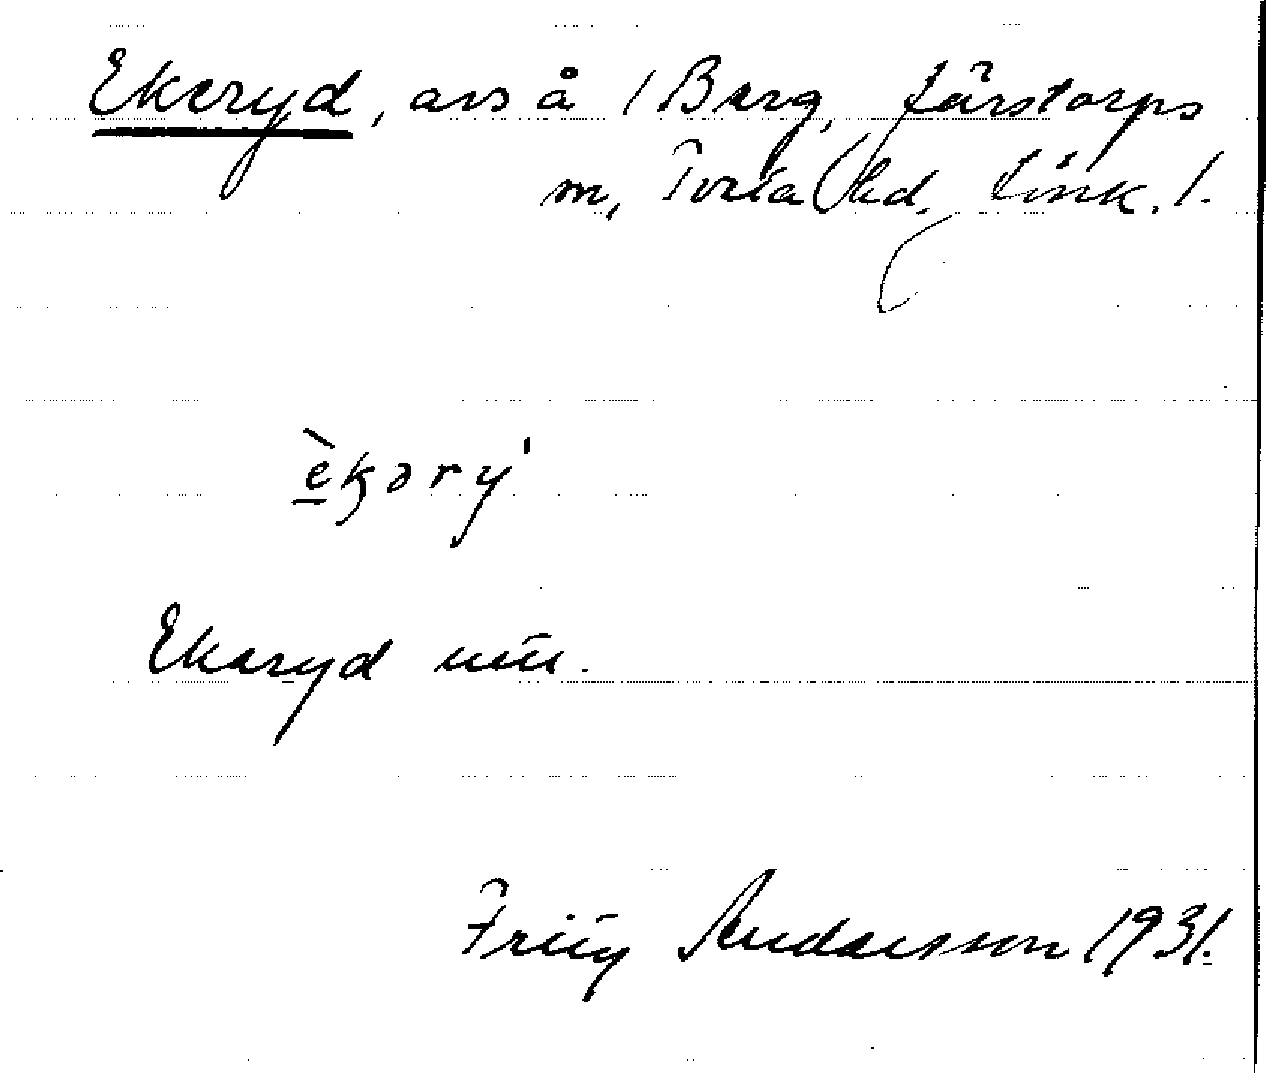 Ekeryd, avs å /Berg, Järstorps
sn, Tveta hd, Jönk. l.
èkəry'
Ekeryd
Andersson 1931.